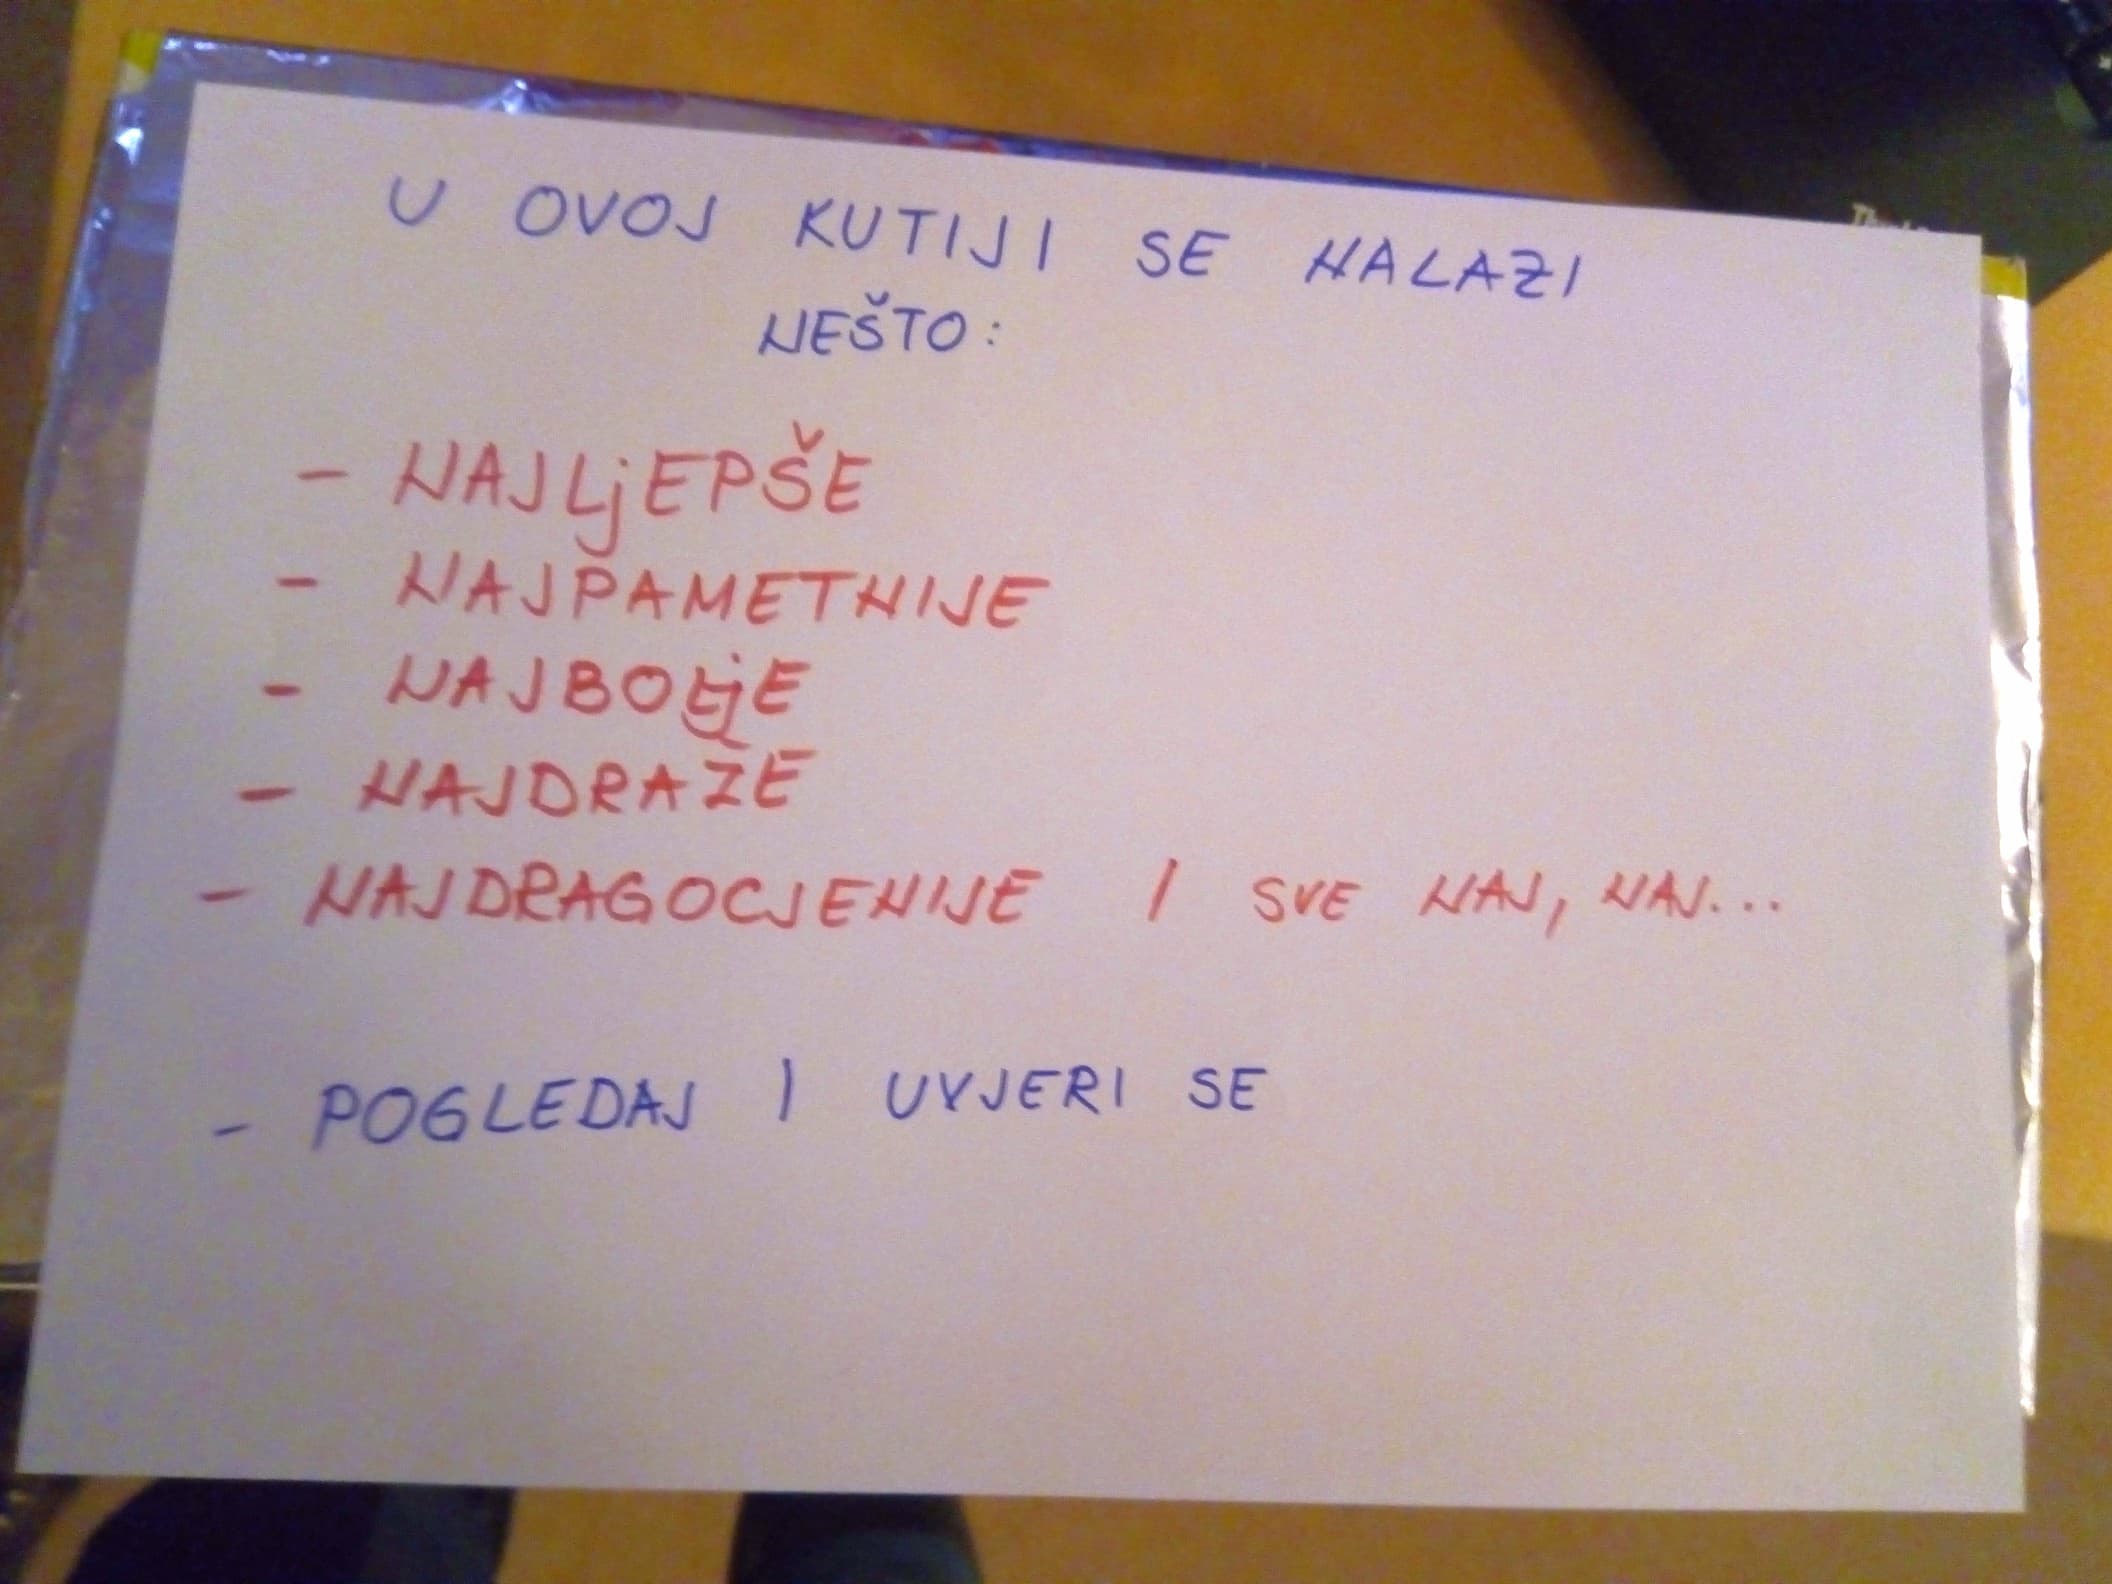 U OVOJ KUTIJI SE NALAZI
NEŠTO:
- NAJLjEPŠE
- NAJPAMETNIJE
- NAJBOLjE
- NAJDRAŽE
- NAJDRAGOCJENIJE I SVE NAJ, NAJ...
- POGLEDAJ I UVJERI SE